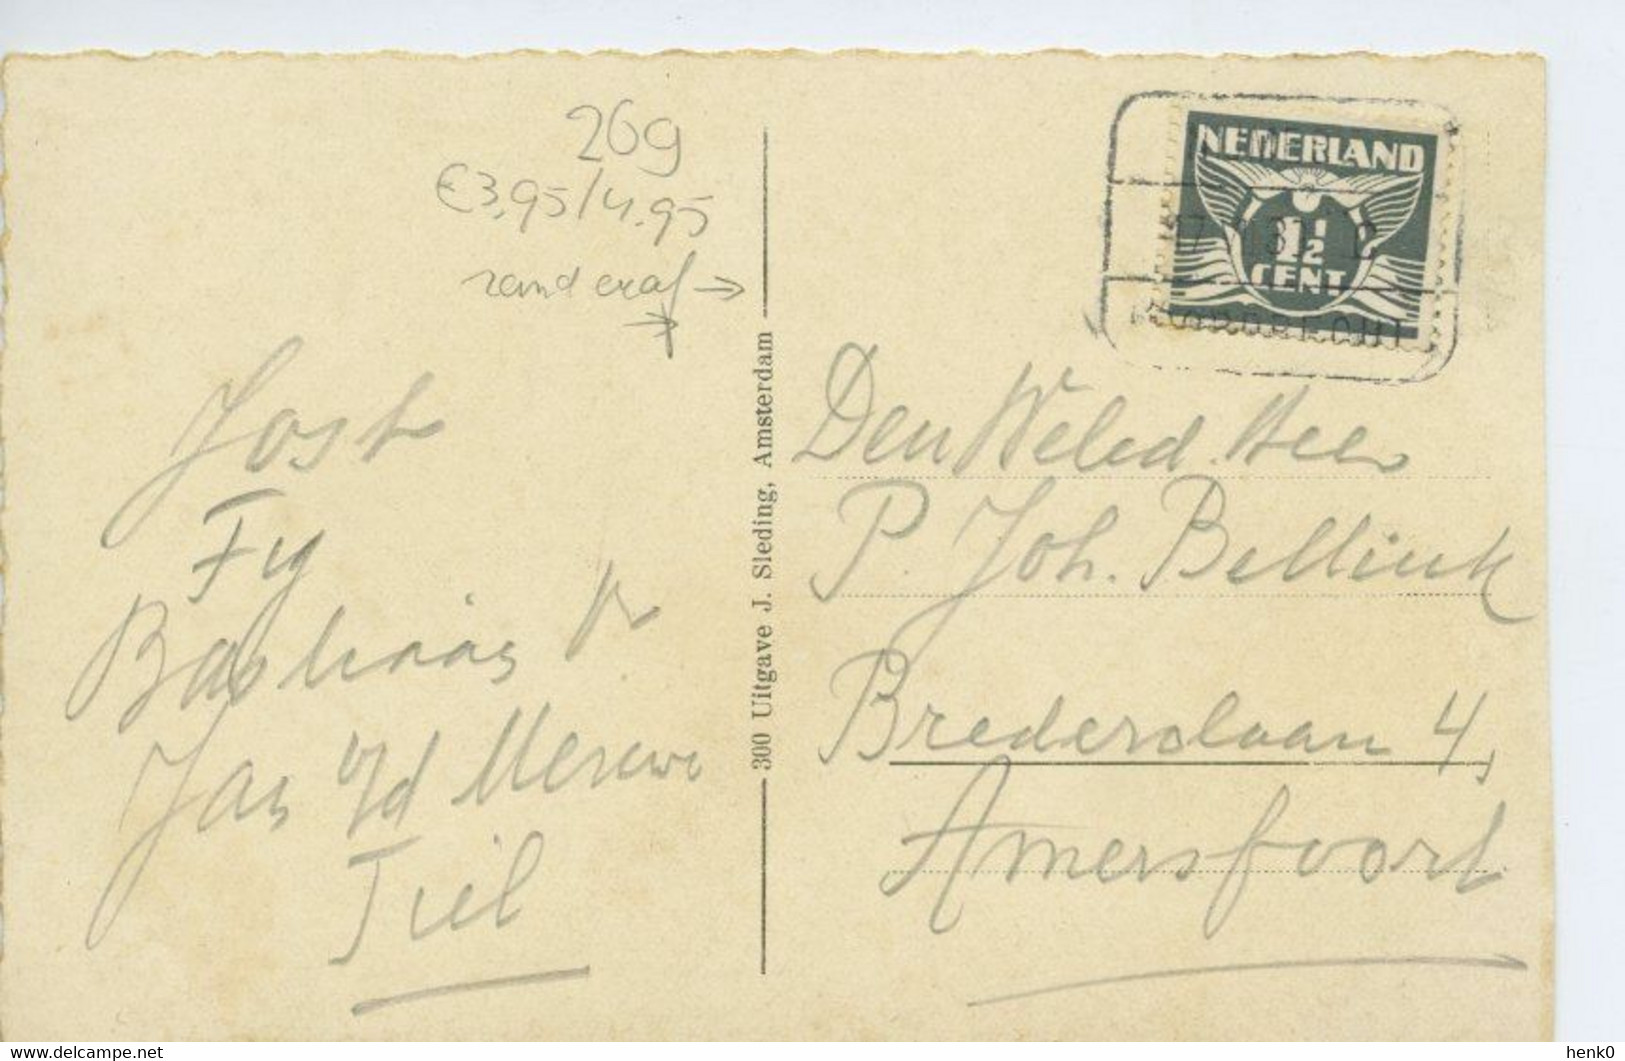 26g
€3,95/4.95
rand eraf →
Jost
Fy
Jas v/d Merwe
Tiel
300 Uitgave J. Sleding, Amsterdam
NEDERLAND
1½
CENT
DORDRECHT
Den Weled. Heer
P. Joh. Bellink
Brederolaan 4,
Amersfoort
delcampe.net
henk0